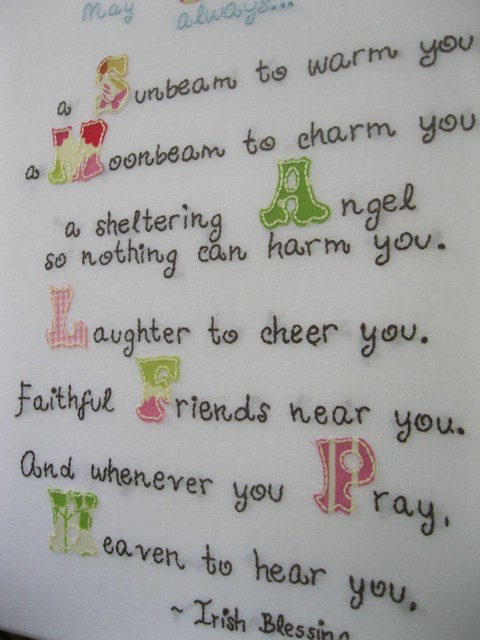 May always...
a Sunbeam to warm you
a Moonbeam to charm you
a sheltering Angel
so nothing can harm you.
Laughter to cheer you.
Faithful Friends near you.
And whenever you Pray,
Heaven to hear you.
~ Irish Blessing